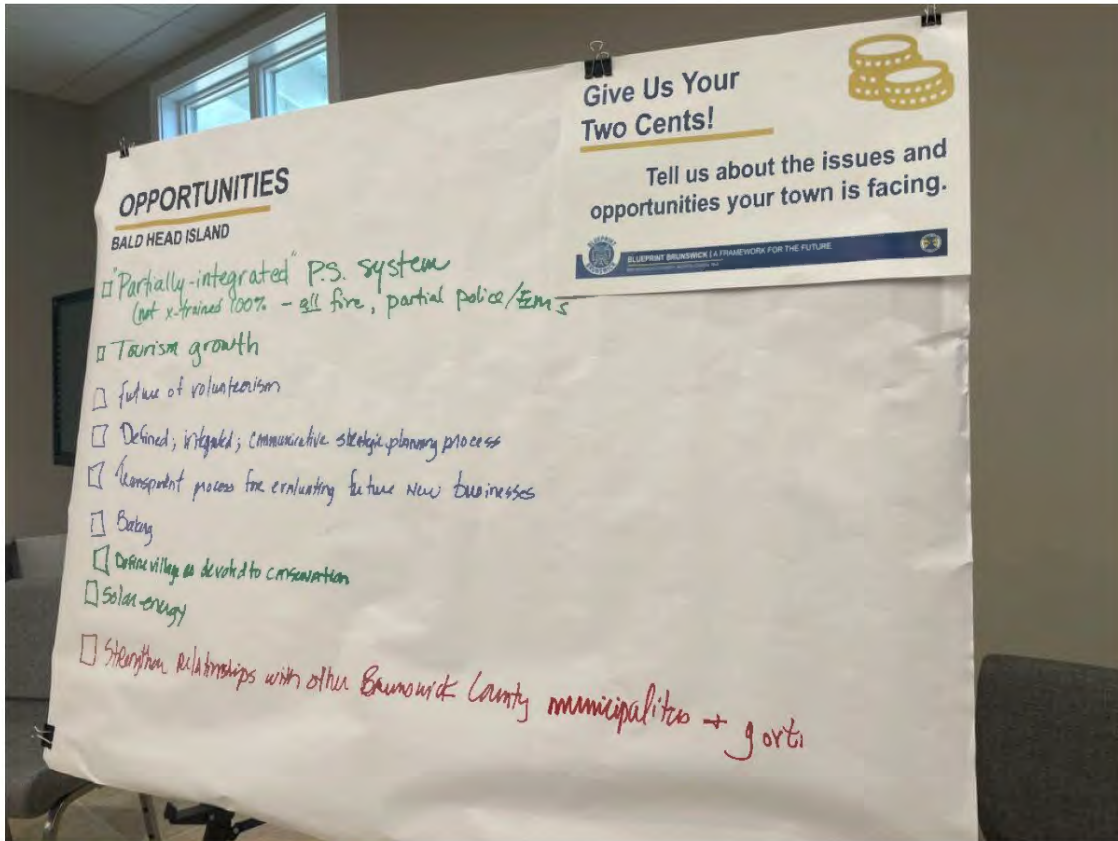 Give Us Your
Two Cents!
Tell us about the issues and
opportunities your town is facing.
BLUEPRINT BRUNSWICK | A FRAMEWORK FOR THE FUTURE
OPPORTUNITIES
BALD HEAD ISLAND
"Partially-integrated" P.S. system
(not x-trained 100% - all fire, partial police/EMS
Tourism growth
Future of volunteerism
Defined; integrated; communicative strategic planning process
Transparent process for evaluating future new businesses
Define village as devoted to conservation
Solar energy
Strengthen relationships with other Brunswick County municipalities +